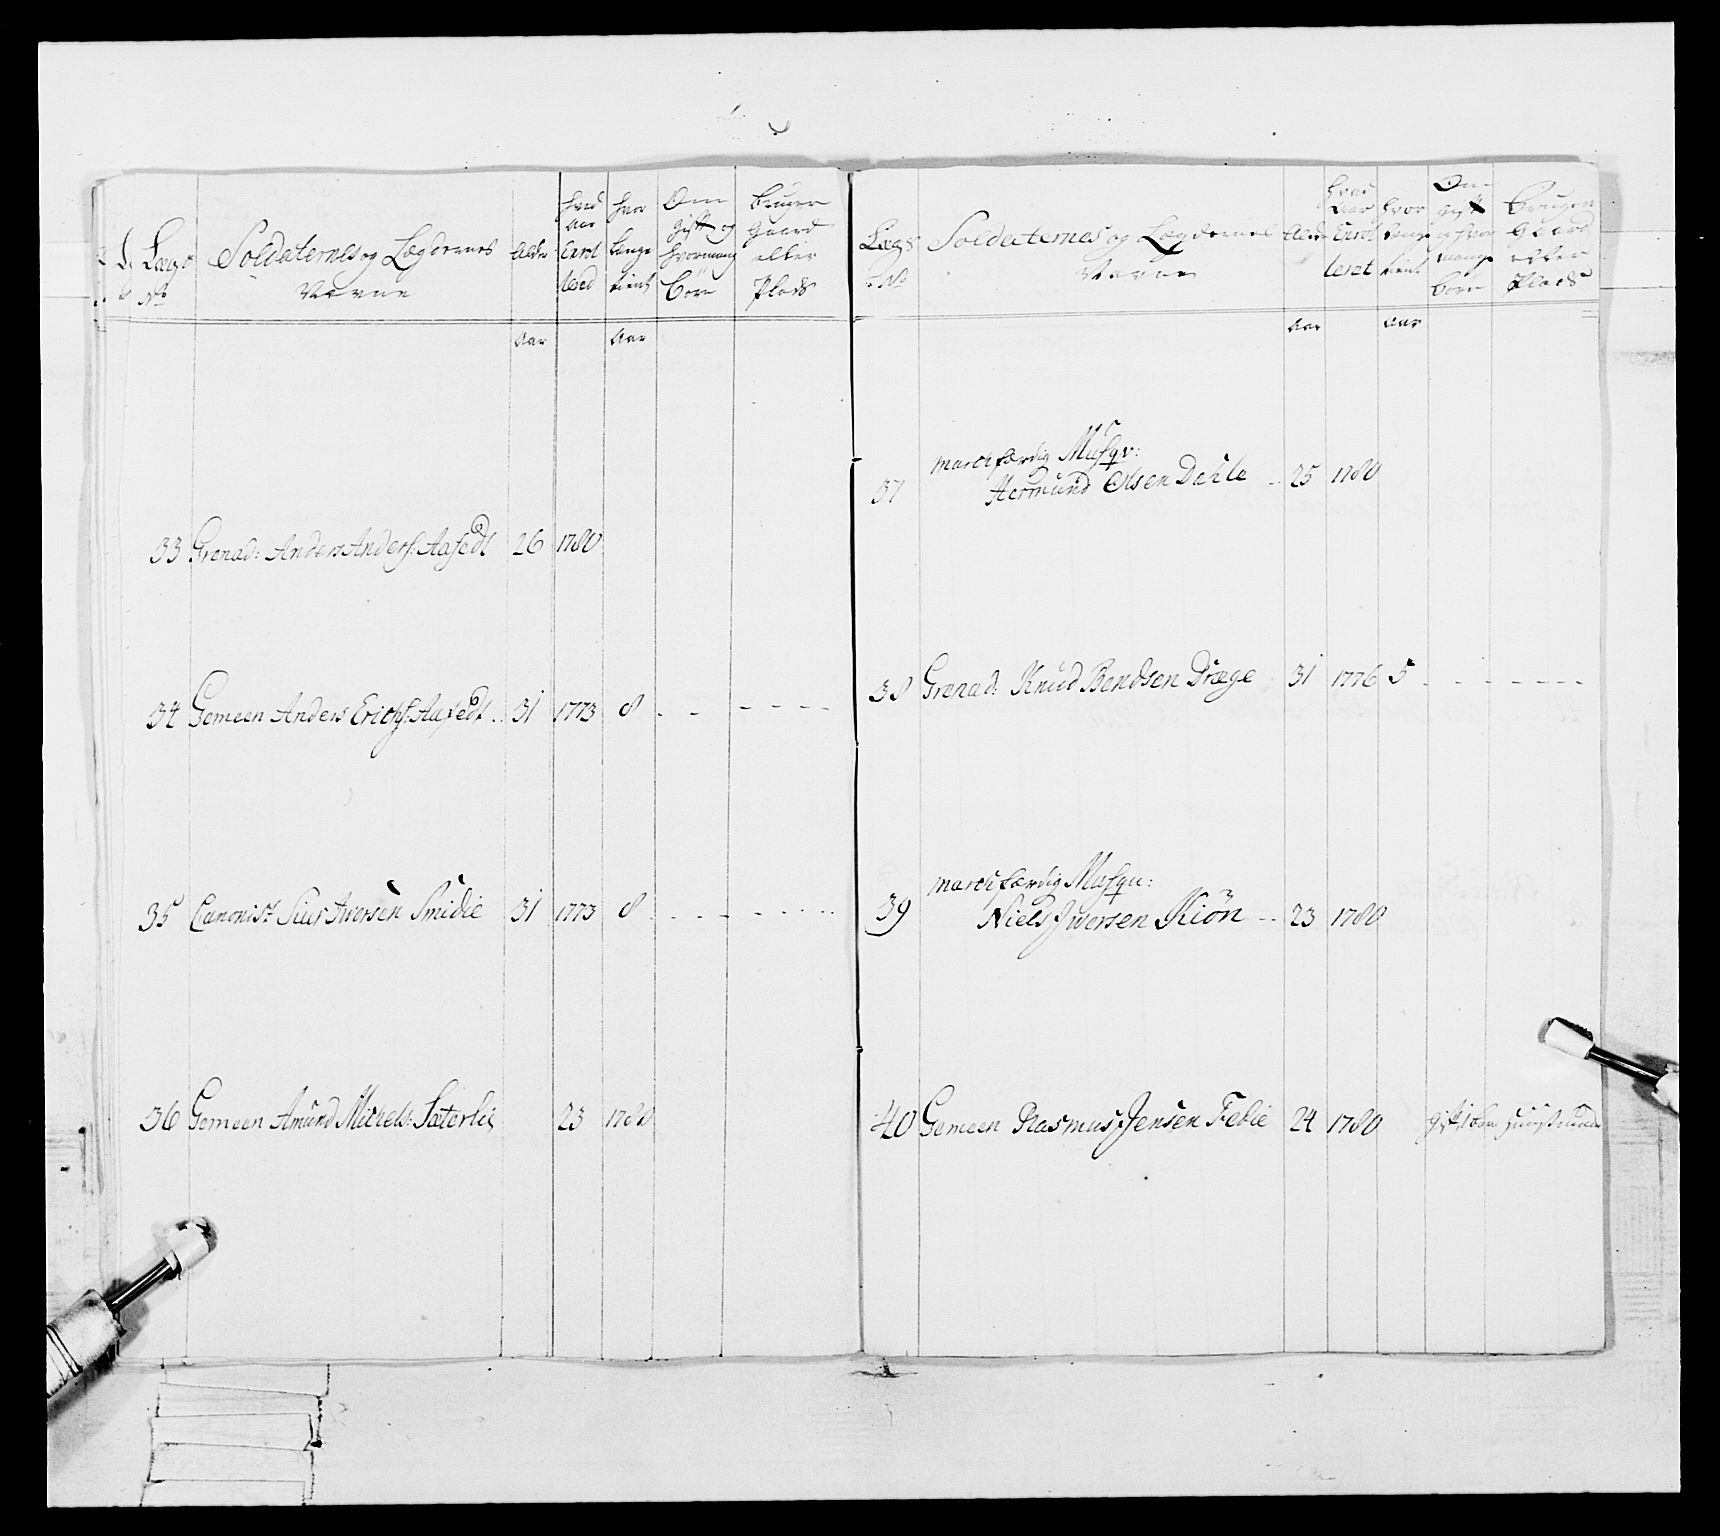 Lægs No
Soldaternes og Lægdernes Navne
Alder
hvad Aar Enrol lered
hvor længe tient
Om gift og hvormang Börn
bruger Gaard eller Plads
Aar Aar
33 Grenad: Anders Anders: Aasedt 26 1780
34 Gemeen Anders Erichs: Aasedt .. 31 1773 8
35 Canonist Siur Iversen Smidie 31 1773 8
36 Gemeen Amund Michels: Sæterlie 23 1780
Lægs No
Soldaternes og Lægdernes Navne
Alder
hvad Aar Enrol leret
hvor længe tient
Om gift og hvor mange börn
Bruger Gaard eller Plads
Aar Aar
marchfærdig Musqv:
37 Hermund Olsen Dahle .. 25 1780
38 Grenad: Knud Bendsen Dræge 31 1776 5
marchfærdig Musqu:
39 Niels Iwersen Kiön .. 23 1780
40 Gemeen Rasmus Jensen Febie 24 1780 gift 1 barn